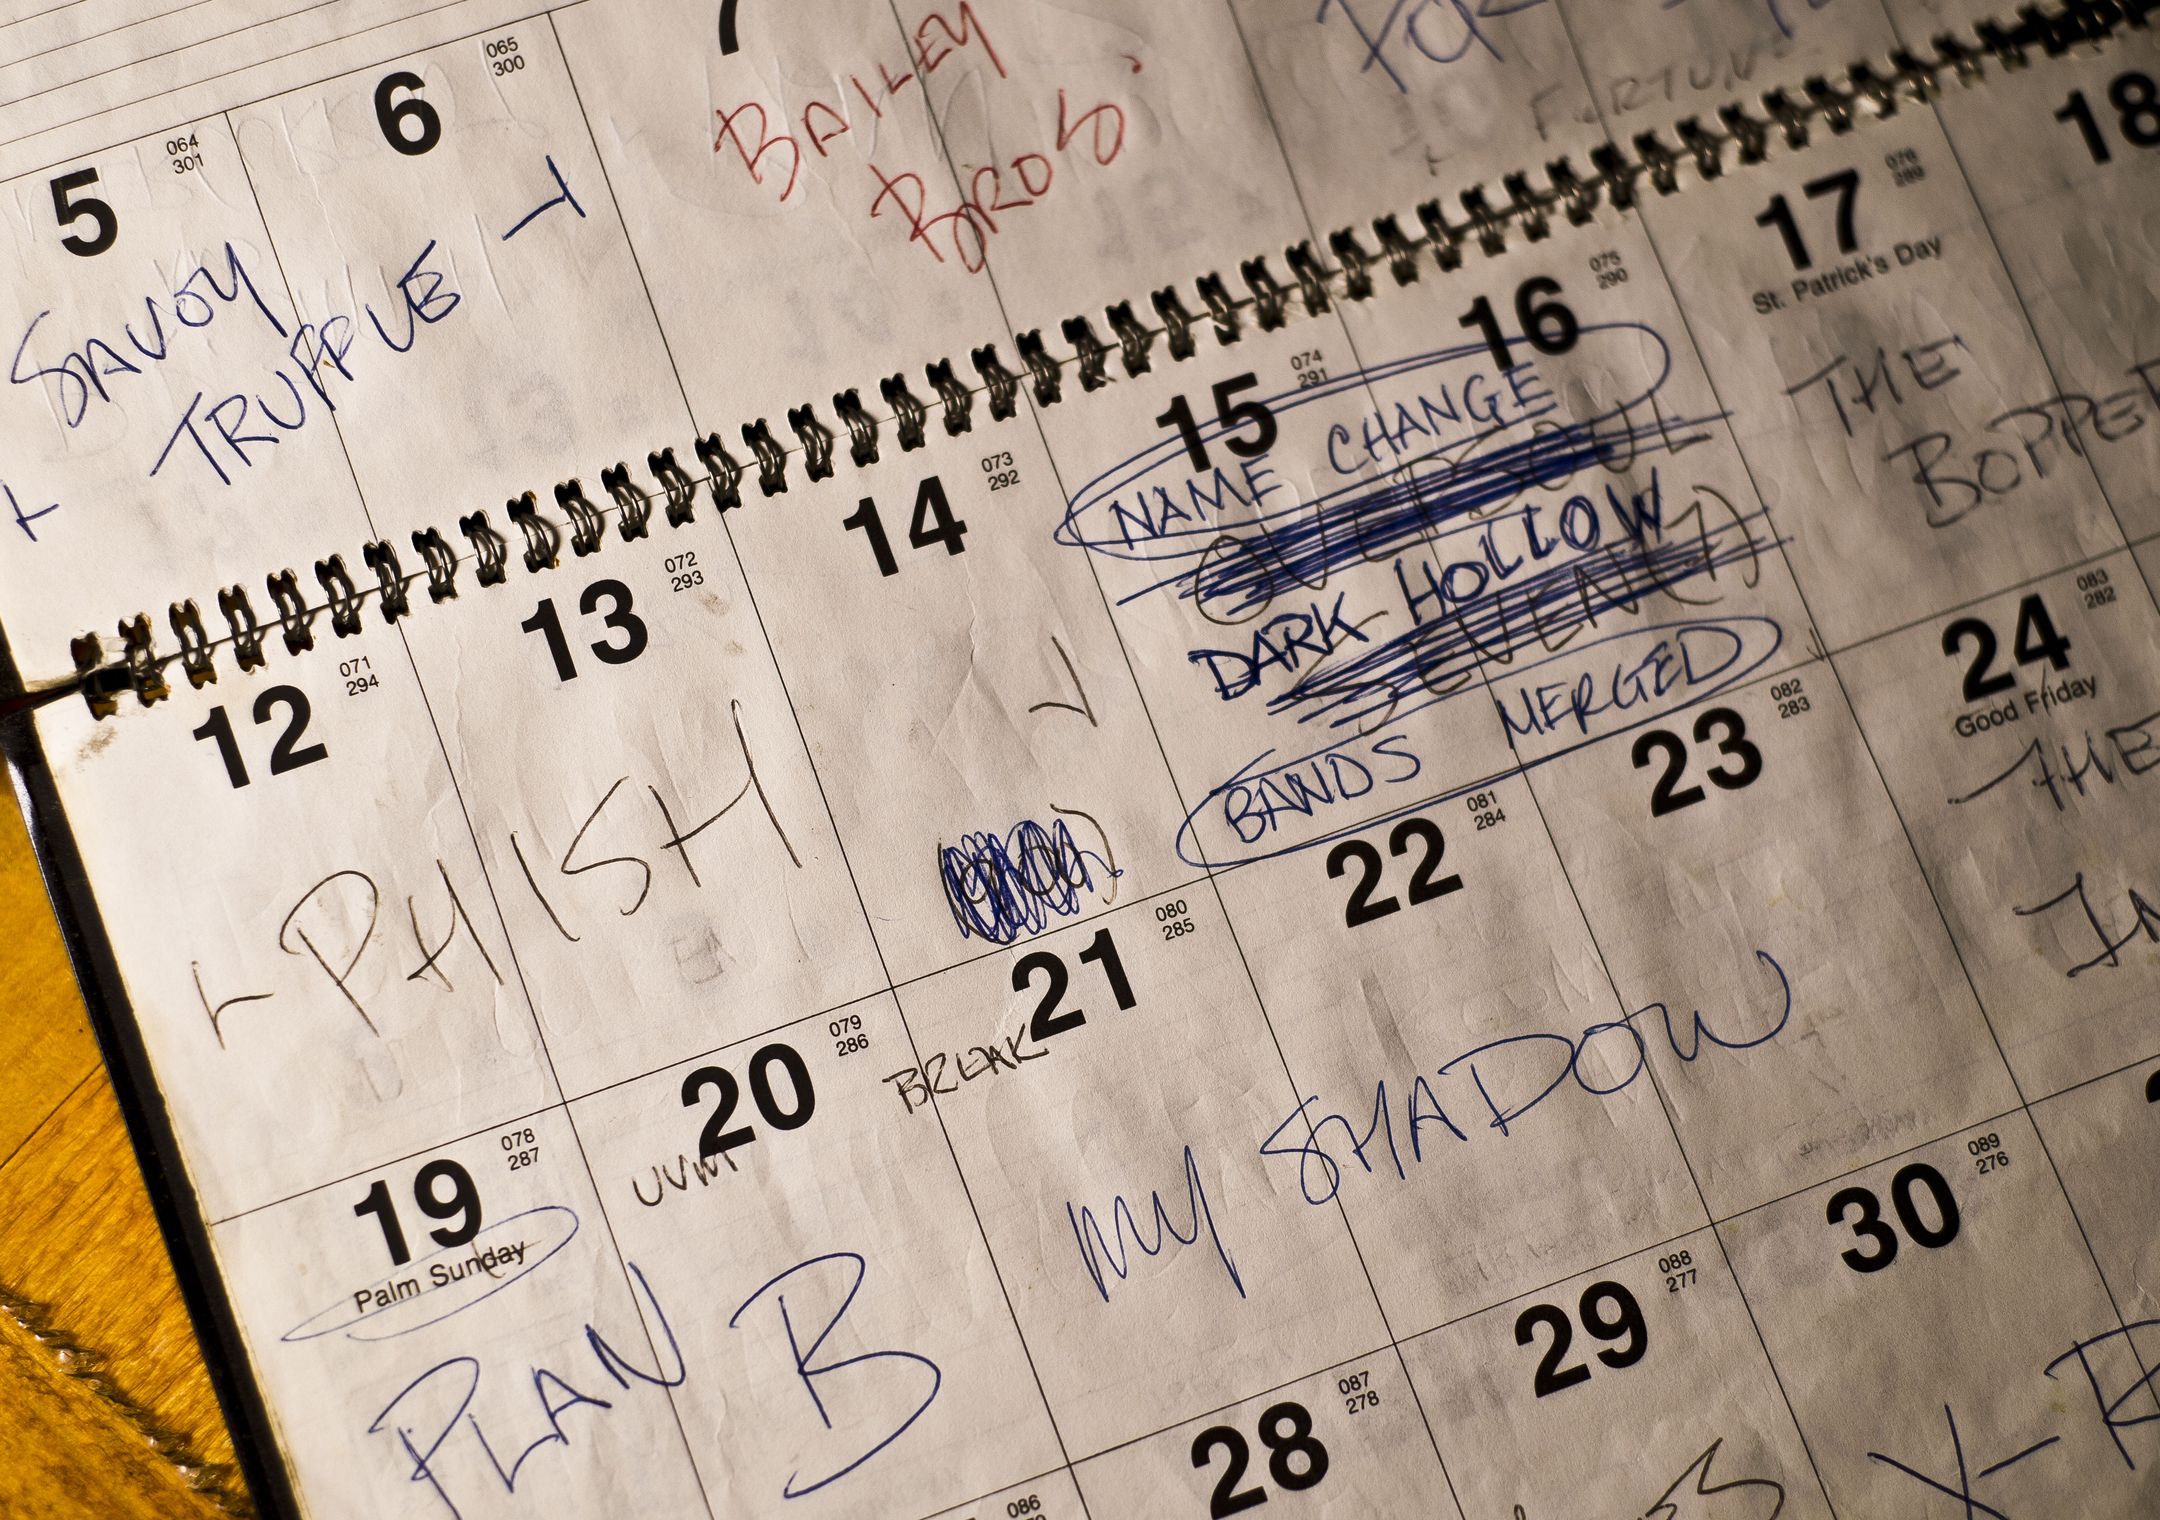 5 064 301
6 065 300
7
SAVOY
TRUFFLE
BAILEY
BROS.
FORTUNE
12 071 294
13 072 293
14 073 292
15 074 291
16 075 290
17 076 289
18
St. Patrick's Day
PHISH
NAME CHANGE
OVERSOUL
DARK HOLLOW
SEVEN (7)
BANDS MERGED
THE
BOPPE
19 078 287
20 079 286
21 080 285
22 081 284
23 082 283
24 083 282
Palm Sunday
Good Friday
UVM
BREAK
PLAN B
MY SHADOW
THE
IN
086
28 087 278
29 088 277
30 089 276
X-R